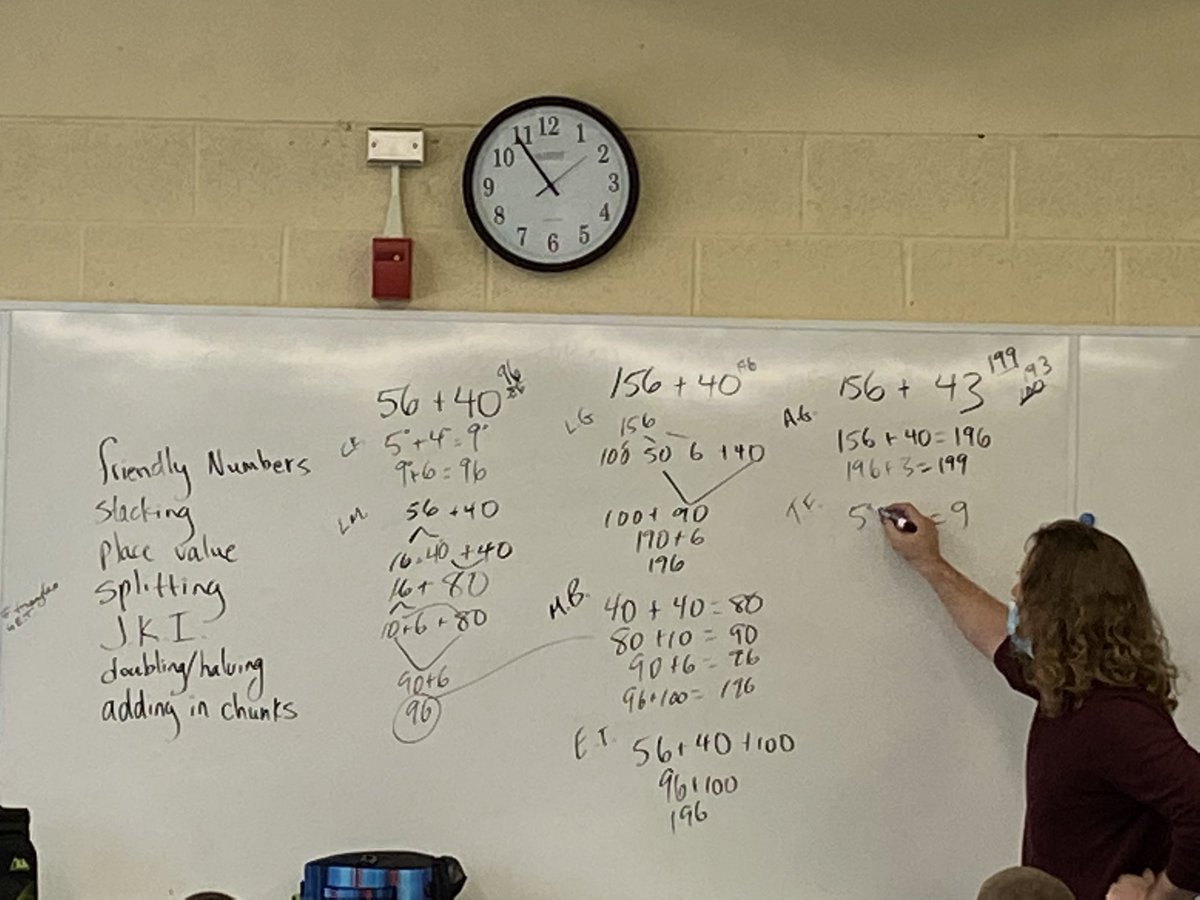 12
1
2
3
4
5
6
7
8
9
10
11
friendly Numbers
Stacking
place value
splitting
J.K.I.
doubling/halving
adding in chunks
56 + 40
96
5° + 4° = 9°
9° + 6 = 96
L.M.
56 + 40
16 + 40 + 40
16 + 80
10 + 6 + 80
90 + 6
96
156 + 40
L.G.
156
100 50 6 + 40
100 + 90
190 + 6
196
M.B.
40 + 40 = 80
80 + 10 = 90
90 + 6 = 96
96 + 100 = 196
E.T.
56 + 40 + 100
96 + 100
196
156 + 43
199
193
A.G.
156 + 40 = 196
196 + 3 = 199
T.E.
5 = 9